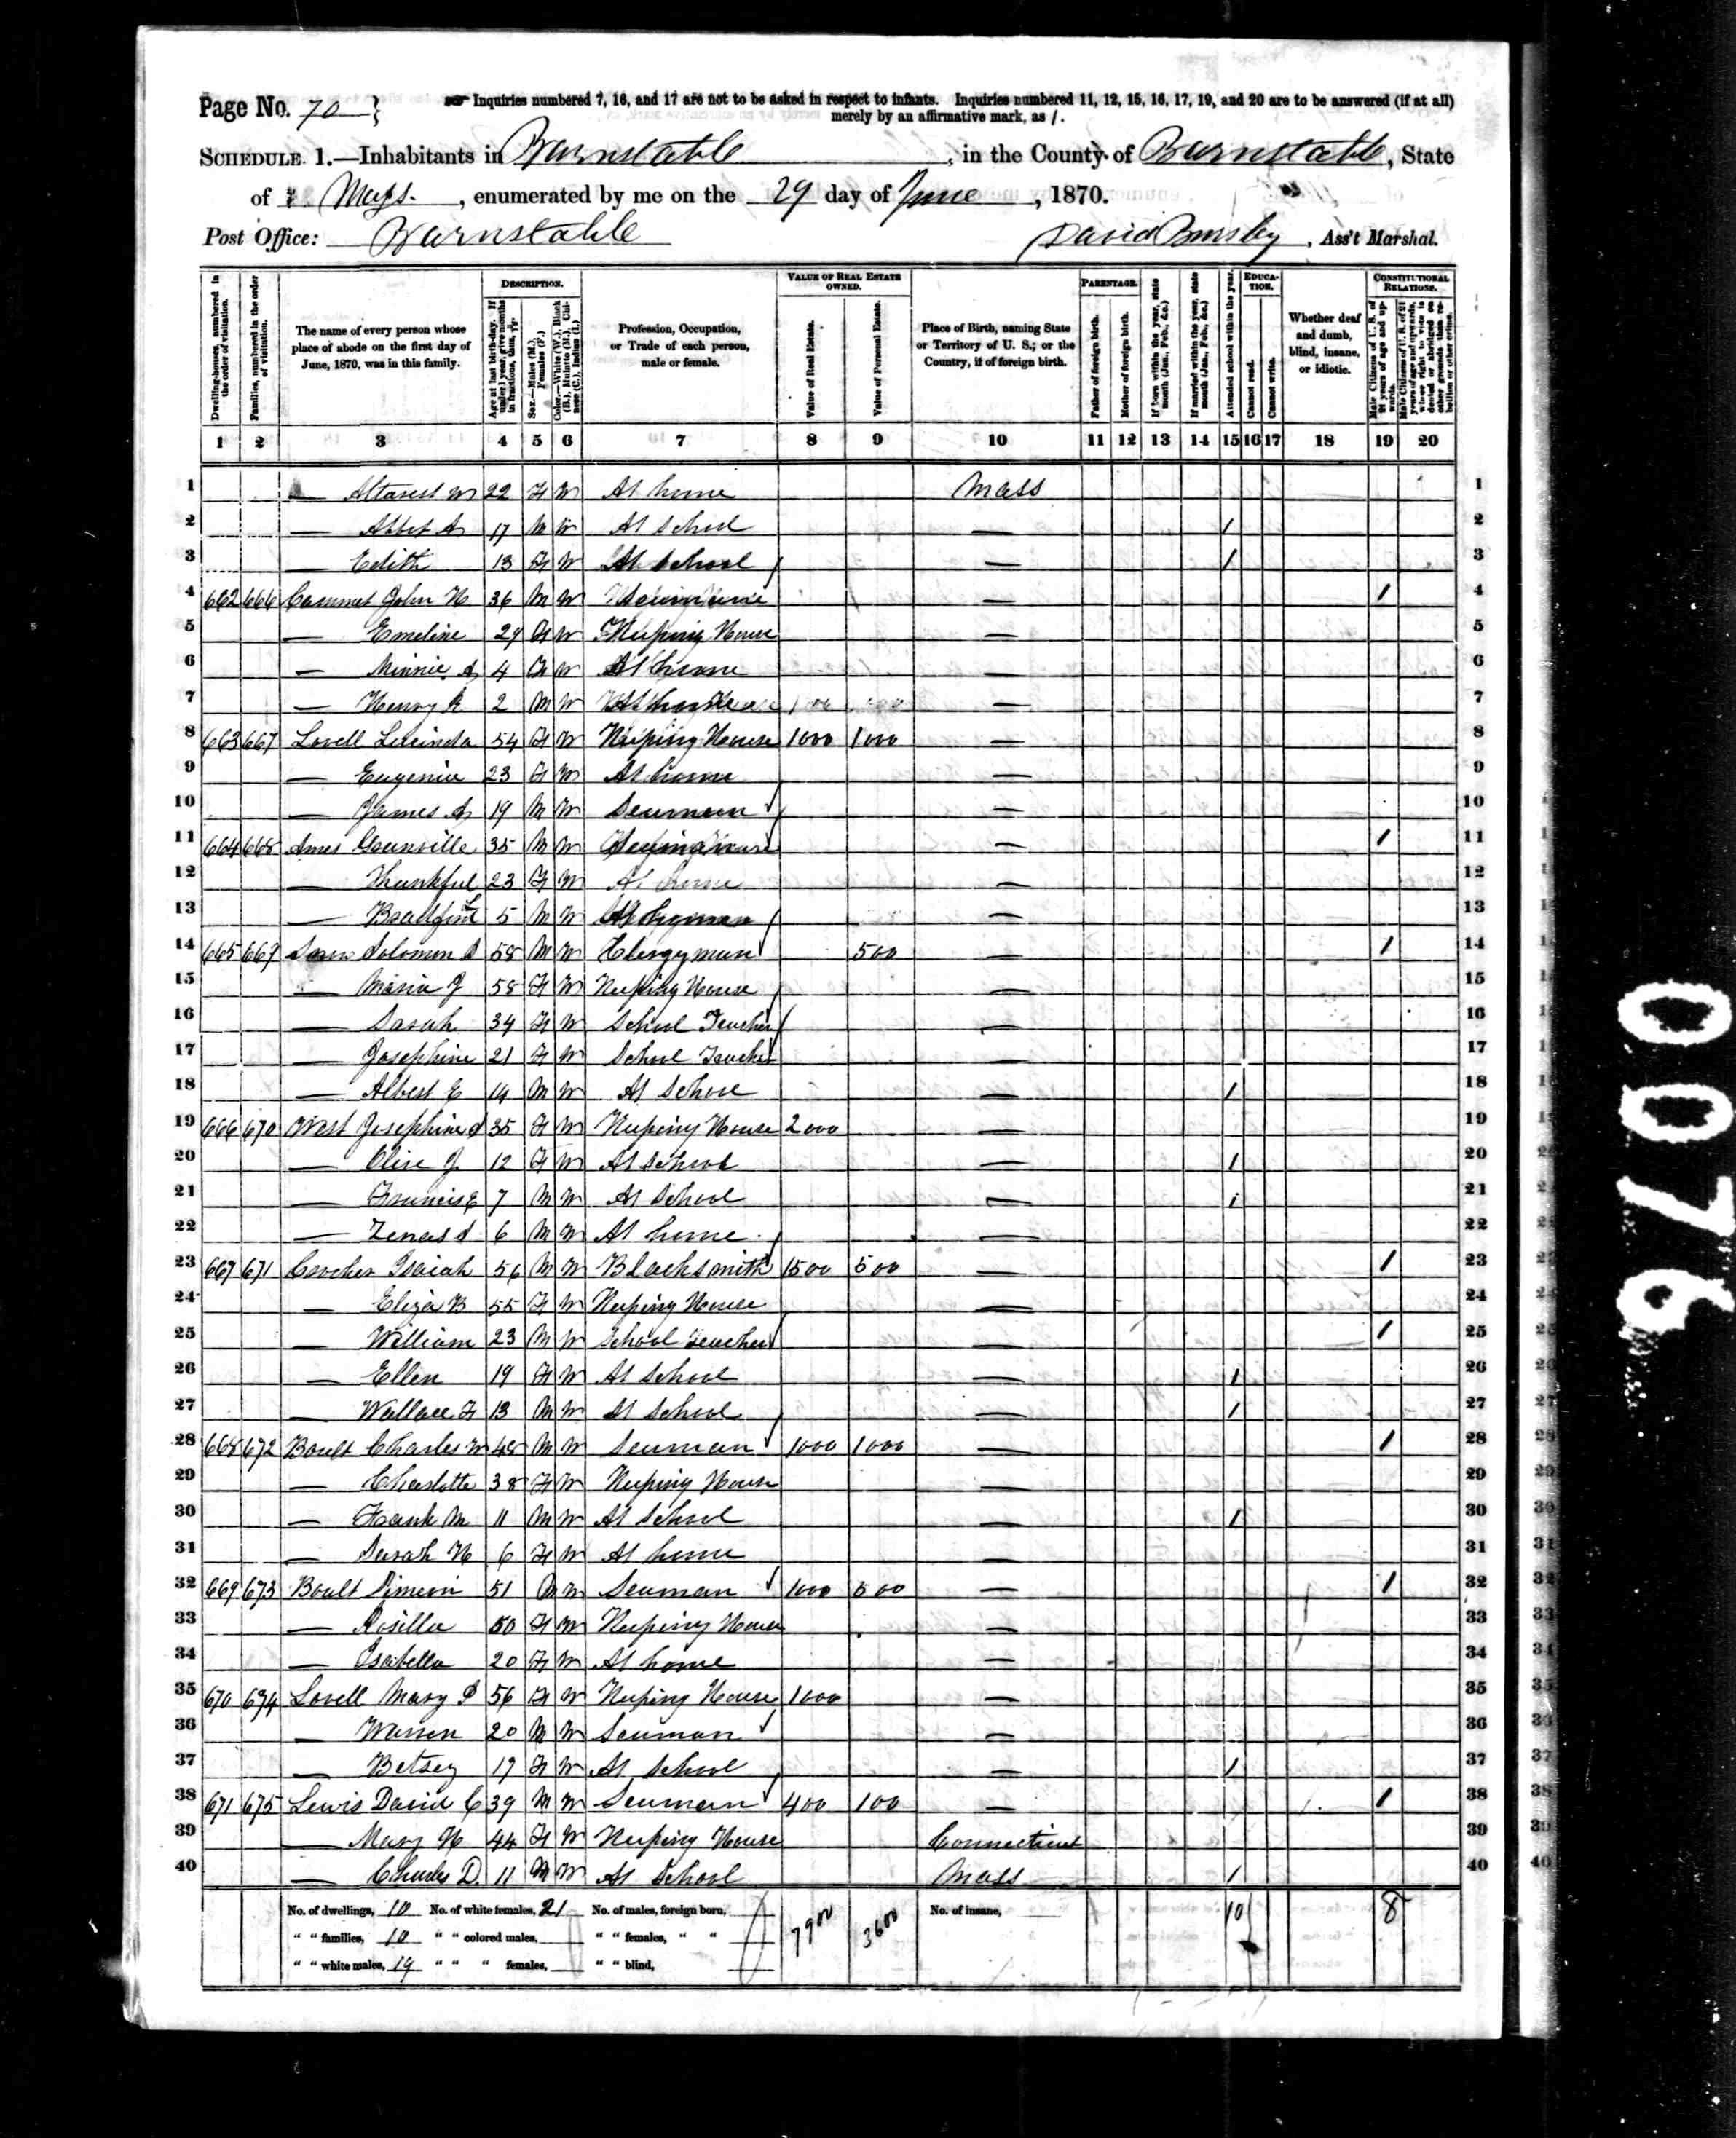 Page No. 70 } Inquiries numbered 7, 16, and 17 are not to be asked in respect to infants. Inquiries numbered 11, 12, 15, 16, 17, 19, and 20 are to be answered (if at all)
merely by an affirmative mark, as /.
SCHEDULE 1.—Inhabitants in Barnstable, in the County of Barnstable, State
of Mass., enumerated by me on the 29 day of June, 1870.
Post Office: Barnstable David Bursley, Ass't Marshal.
Dwelling-houses, numbered in the order of visitation.
Families, numbered in the order of visitation.
The name of every person whose place of abode on the first day of June, 1870, was in this family.
DESCRIPTION.
Age at last birth-day. If under 1 year, give months in fractions, thus, 3/12.
Sex.—Males (M.), Females (F.)
Color.—White (W.), Black (B.), Mulatto (M.), Chinese (C.), Indian (I.)
Profession, Occupation, or Trade of each person, male or female.
VALUE OF REAL ESTATE OWNED.
Value of Real Estate.
Value of Personal Estate.
Place of Birth, naming State or Territory of U. S.; or the Country, if of foreign birth.
PARENTAGE.
Father of foreign birth.
Mother of foreign birth.
If born within the year, state month (Jan., Feb., &c.)
If married within the year, state month (Jan., Feb., &c.)
Attended school within the year.
EDUCATION.
Cannot read.
Cannot write.
Whether deaf and dumb, blind, insane, or idiotic.
CONSTITUTIONAL RELATIONS.
Male Citizens of U. S. of 21 years of age and upwards.
Male Citizens of U. S. of 21 years of age and upwards, whose right to vote is denied or abridged on other grounds than rebellion or other crime.
1 2 3 4 5 6 7 8 9 10 11 12 13 14 15 16 17 18 19 20
1 — 22 F W At home Mass 1
2 — Albert A 17 M W At school — / 2
3 — Edith 13 F W At school — / 3
4 662 666 Cammet John H 36 M W — / 4
5 — Emeline 29 F W Keeping House — 5
6 — Minnie A 4 F W At home — 6
7 — Henry R 2 M W At home — 7
8 663 667 Lovell Lucinda 54 F W Keeping House 1000 1000 — 8
9 — Eugenia 23 F W At home — 9
10 — James A 19 M W Seaman — 10
11 664 668 Ames Granville 35 M W — / 11
12 — Thankful 23 F W At home — 12
13 — Bradford 5 M W — 13
14 665 669 Solomon S 58 M W Clergyman 500 — / 14
15 — Maria J 58 F W Keeping House — 15
16 — Sarah 34 F W School Teacher — 16
17 — Josephine 21 F W School Teacher — 17
18 — Albert E 14 M W At School — / 18
19 666 670 West Josephine S 35 F W Keeping House 2000 — 19
20 — Olive J 12 F W At school — / 20
21 — Francis E 7 M W At School — / 21
22 — Zenas S 6 M W At home — 22
23 667 671 Crocker Isaiah 56 M W Blacksmith 1500 500 — / 23
24 — Eliza B 55 F W Keeping House — 24
25 — William 23 M W School Teacher — / 25
26 — Ellen 19 F W At school — / 26
27 — Wallace F 13 M W At School — / 27
28 668 672 Boult Charles W 48 M W Seaman 1000 1000 — / 28
29 — Charlotte 38 F W Keeping House — 29
30 — Frank M 11 M W At School — / 30
31 — Sarah H 6 F W At home — 31
32 669 673 Boult Simeon 51 M W Seaman 1000 500 — / 32
33 — Rosilla 50 F W Keeping House — 33
34 — Isabella 20 F W At home — 34
35 670 674 Lovell Mary P 56 F W Keeping House 1000 — 35
36 — Warren 20 M W Seaman — 36
37 — Betsey 17 F W At School — / 37
38 671 675 Lewis David C 39 M W Seaman 400 100 — / 38
39 — Mary H 44 F W Keeping House Connecticut 39
40 — Charles D. 11 M W At School Mass / 40
No. of dwellings, 10 No. of white females, 21 No. of males, foreign born, 7900 3600 No. of insane, 10 8
" " families, 10 " " colored males, " " females, " "
" " white males, 19 " " " females, " " blind,
0076